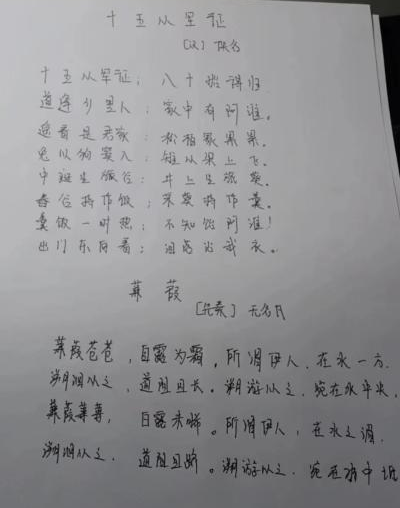 十五从军征
[汉] 佚名
十五从军征，八十始得归
道逢乡里人：家中有阿谁。
遥看是君家：松柏冢累累。
兔从狗窦入：雉从梁上飞。
中庭生旅谷：井上生旅葵。
舂谷持作饭：采葵持作羹。
羹饭一时熟：不知饴阿谁！
出门东向看：泪落沾我衣。
蒹葭
无名氏
蒹葭苍苍，白露为霜，所谓伊人，在水一方.
溯洄从之，道阻且长。溯游从之，宛在水中央.
蒹葭萋萋，白露未晞。所谓伊人，在水之湄.
溯洄从之．道阻且跻。溯游从之．宛在水中坻